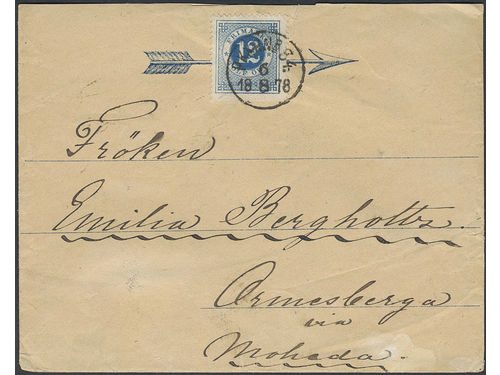 FRIMÄRKE
12
6
18 8 78
Fröken
Emilia Bergholtz.
Ormesberga
via
Moheda.